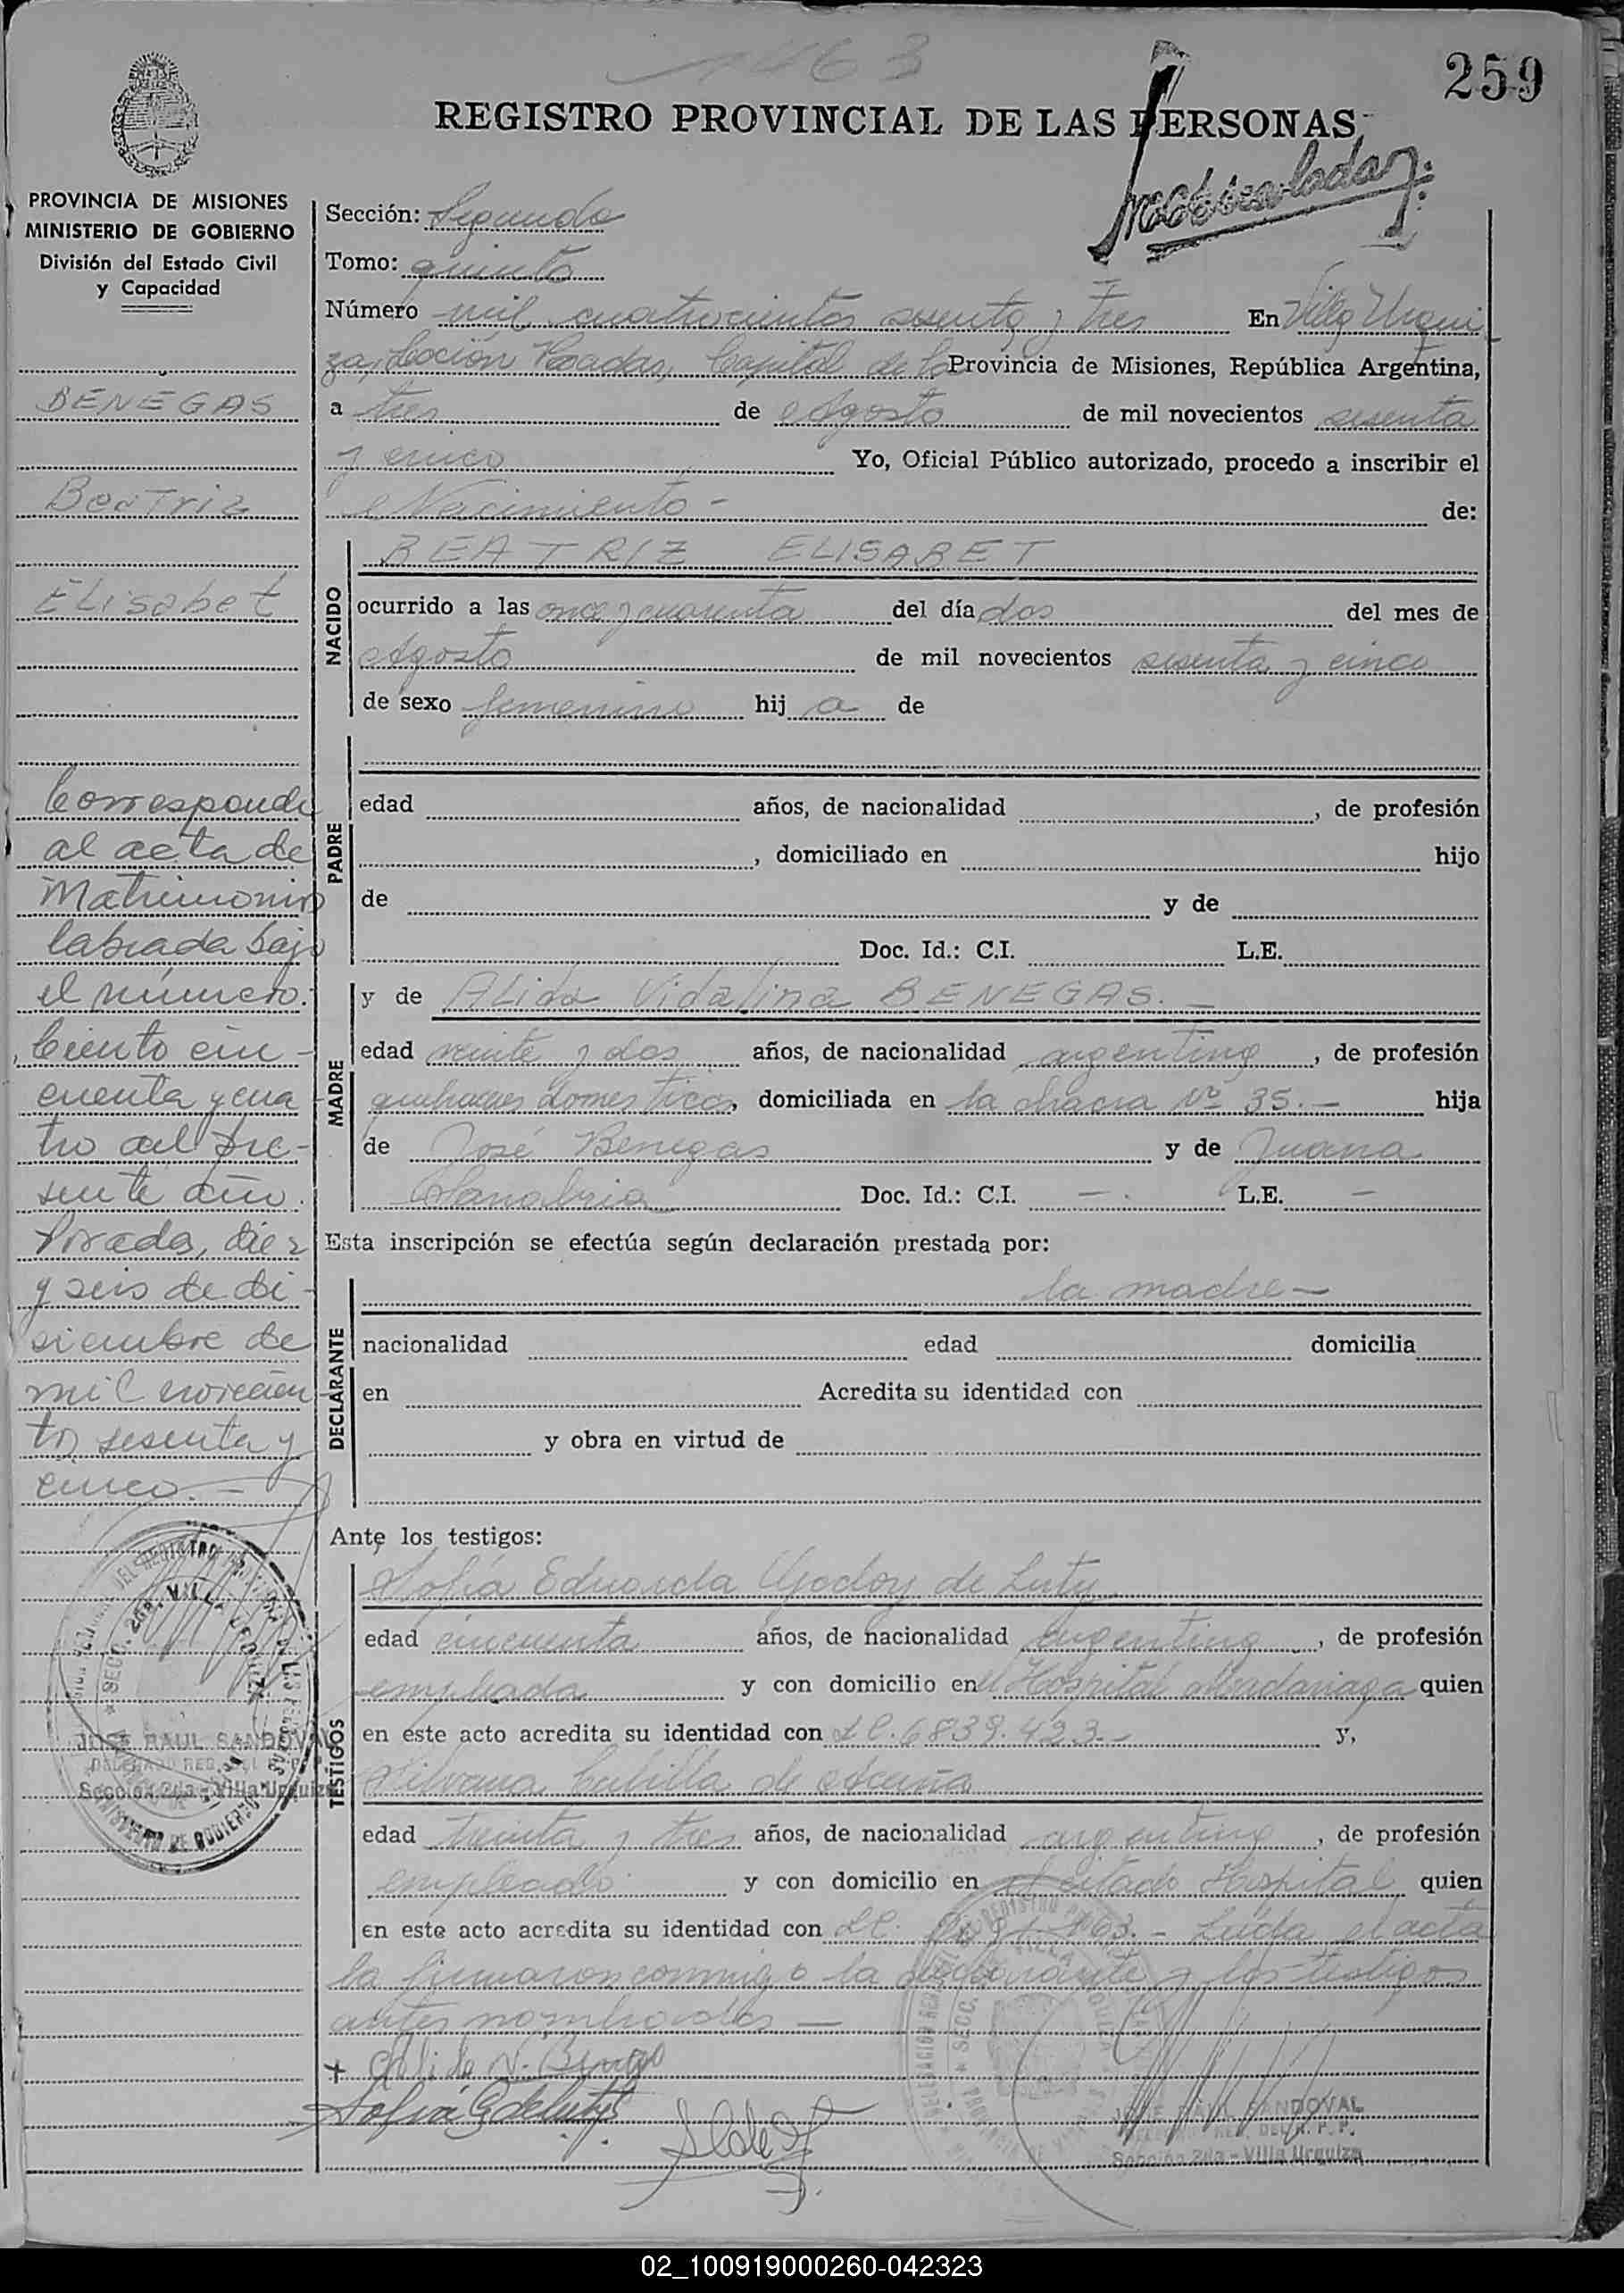 1463
259
REGISTRO PROVINCIAL DE LAS PERSONAS
PROVINCIA DE MISIONES
MINISTERIO DE GOBIERNO
División del Estado Civil
y Capacidad
BENEGAS
Beatriz
Elisabet
Corresponde
al acta de
Matrimonio
labrada bajo
el número:
Ciento cin-
cuenta y cua
tro del pre-
sente año.
Posadas, diez
y seis de di-
siembre de
mil novecien-
tos sesenta y
cinco.-
JOSE RAUL SANDOVAL
Sección 2da - Villa Urquiza
Sección: Segunda
Tomo: quinto
Número mil cuatrocientos sesenta y tres En Villa Urqui
za, Sección Posadas, Capital de la Provincia de Misiones, República Argentina,
a tres de Agosto de mil novecientos sesenta
y cinco Yo, Oficial Público autorizado, procedo a inscribir el
Nacimiento - de:
NACIDO
BEATRIZ ELISABET
ocurrido a las once y cuarenta del día dos del mes de
Agosto de mil novecientos sesenta y cinco
de sexo femenino hij a de
PADRE
edad años, de nacionalidad , de profesión
, domiciliado en hijo
de y de
Doc. Id.: C.I. L.E.
MADRE
y de Alida Vidalina BENEGAS.-
edad veinte y dos años, de nacionalidad argentina, de profesión
quehaceres domesticos, domiciliada en la chacra Nº 35.- hija
de José Benegas y de Juana
Sanabria Doc. Id.: C.I. - . L.E. -
Esta inscripción se efectúa según declaración prestada por:
DECLARANTE
la madre-
nacionalidad edad domicilia
en Acredita su identidad con
y obra en virtud de
Ante los testigos:
TESTIGOS
Sofía Eduarda Godoy de Luty
edad cincuenta años, de nacionalidad argentina, de profesión
empleada y con domicilio en el Hospital Madariaga quien
en este acto acredita su identidad con LC. 6839.423.- y,
Silvana Cubilla de Acuña
edad treinta y tres años, de nacionalidad argentina, de profesión
empleada y con domicilio en el citado Hospital quien
en este acto acredita su identidad con LC. Leída el acta
la firmaron conmigo la declarante y los testigos
antes nombrados -
JOSE RAUL SANDOVAL
Sección 2da - Villa Urquiza
02_100919000260-042323